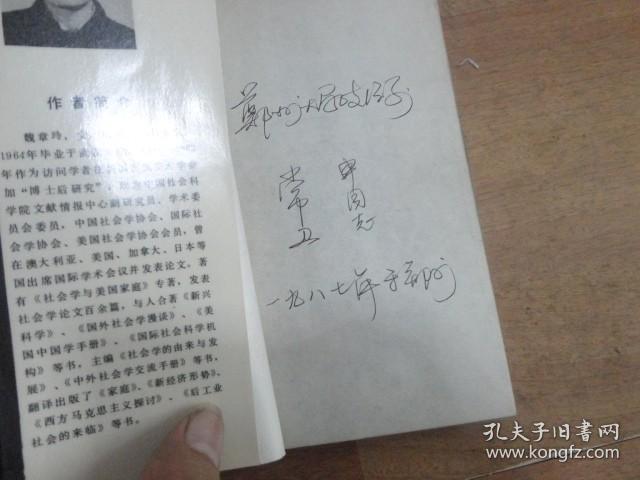 作者简介
魏章玲，
1964年毕业于武
年作为访问学者在
加“博士后研究”
学院文献情报中心副研究员，学术委
员会委员，中国社会学协会、国际社
会学协会、美国社会学协会会员，曾
在澳大利亚、美国、加拿大、日本等
国出席国际学术会议并发表论文。著
有《社会学与美国家庭》专著，发表
社会学论文百余篇，与人合著《新兴
科学》、《国外社会学漫谈》、《美
国中国学手册》、《国际社会科学机
构》等书，主编《社会学的由来与发
展》、《中外社会学交流手册》等书，
翻译出版了《家庭》、《新经济形势》、
《西方马克思主义探讨》、《后工业
社会的来临》等书。
郑州大学政经系
常卫
同志
一九八七年于郑州
孔夫子旧书网
www.kongfz.com